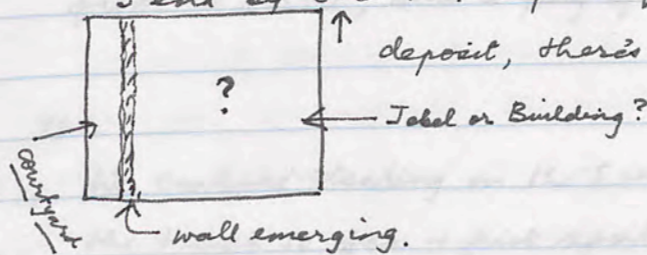 deposit, there's
?
Jebel or Building?
courtyard
wall emerging.